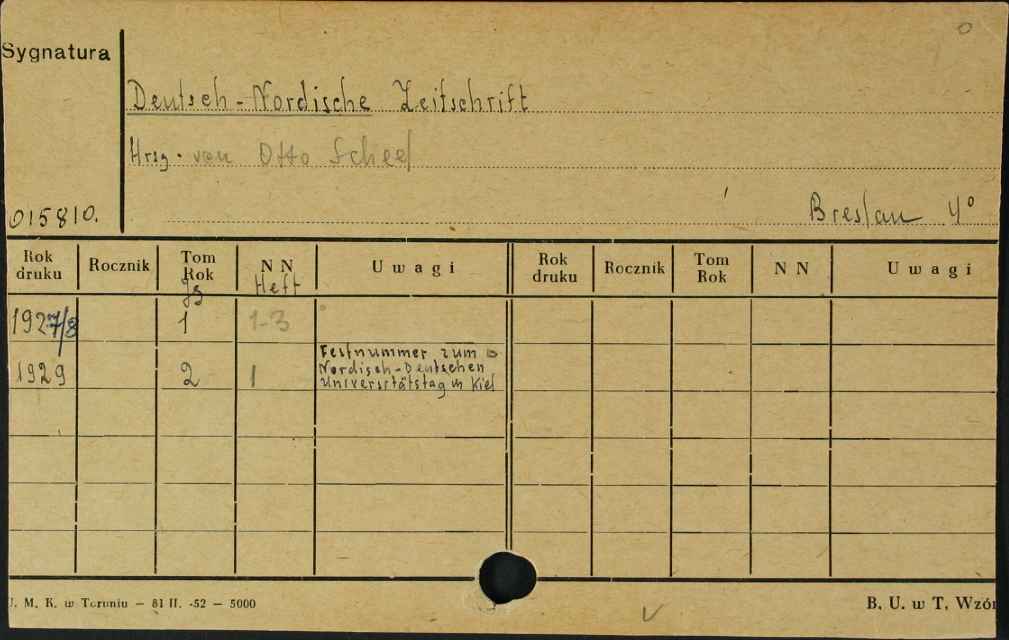 Sygnatura
Deutsch-Nordische Zeitschrift
Hrsg. von Otto Scheel
015810.
Breslau 4°
Rok druku Rocznik Tom Rok Jg N N Heft Uwagi Rok druku Rocznik Tom Rok N N Uwagi
1927/8 1 1-3
1929 2 1 Festnummer zum
Nordisch-Deutschen
Universitätstag in Kiel
U. M. K. w Toruniu — 81 II. -52 — 5000
B. U. w T. Wzór